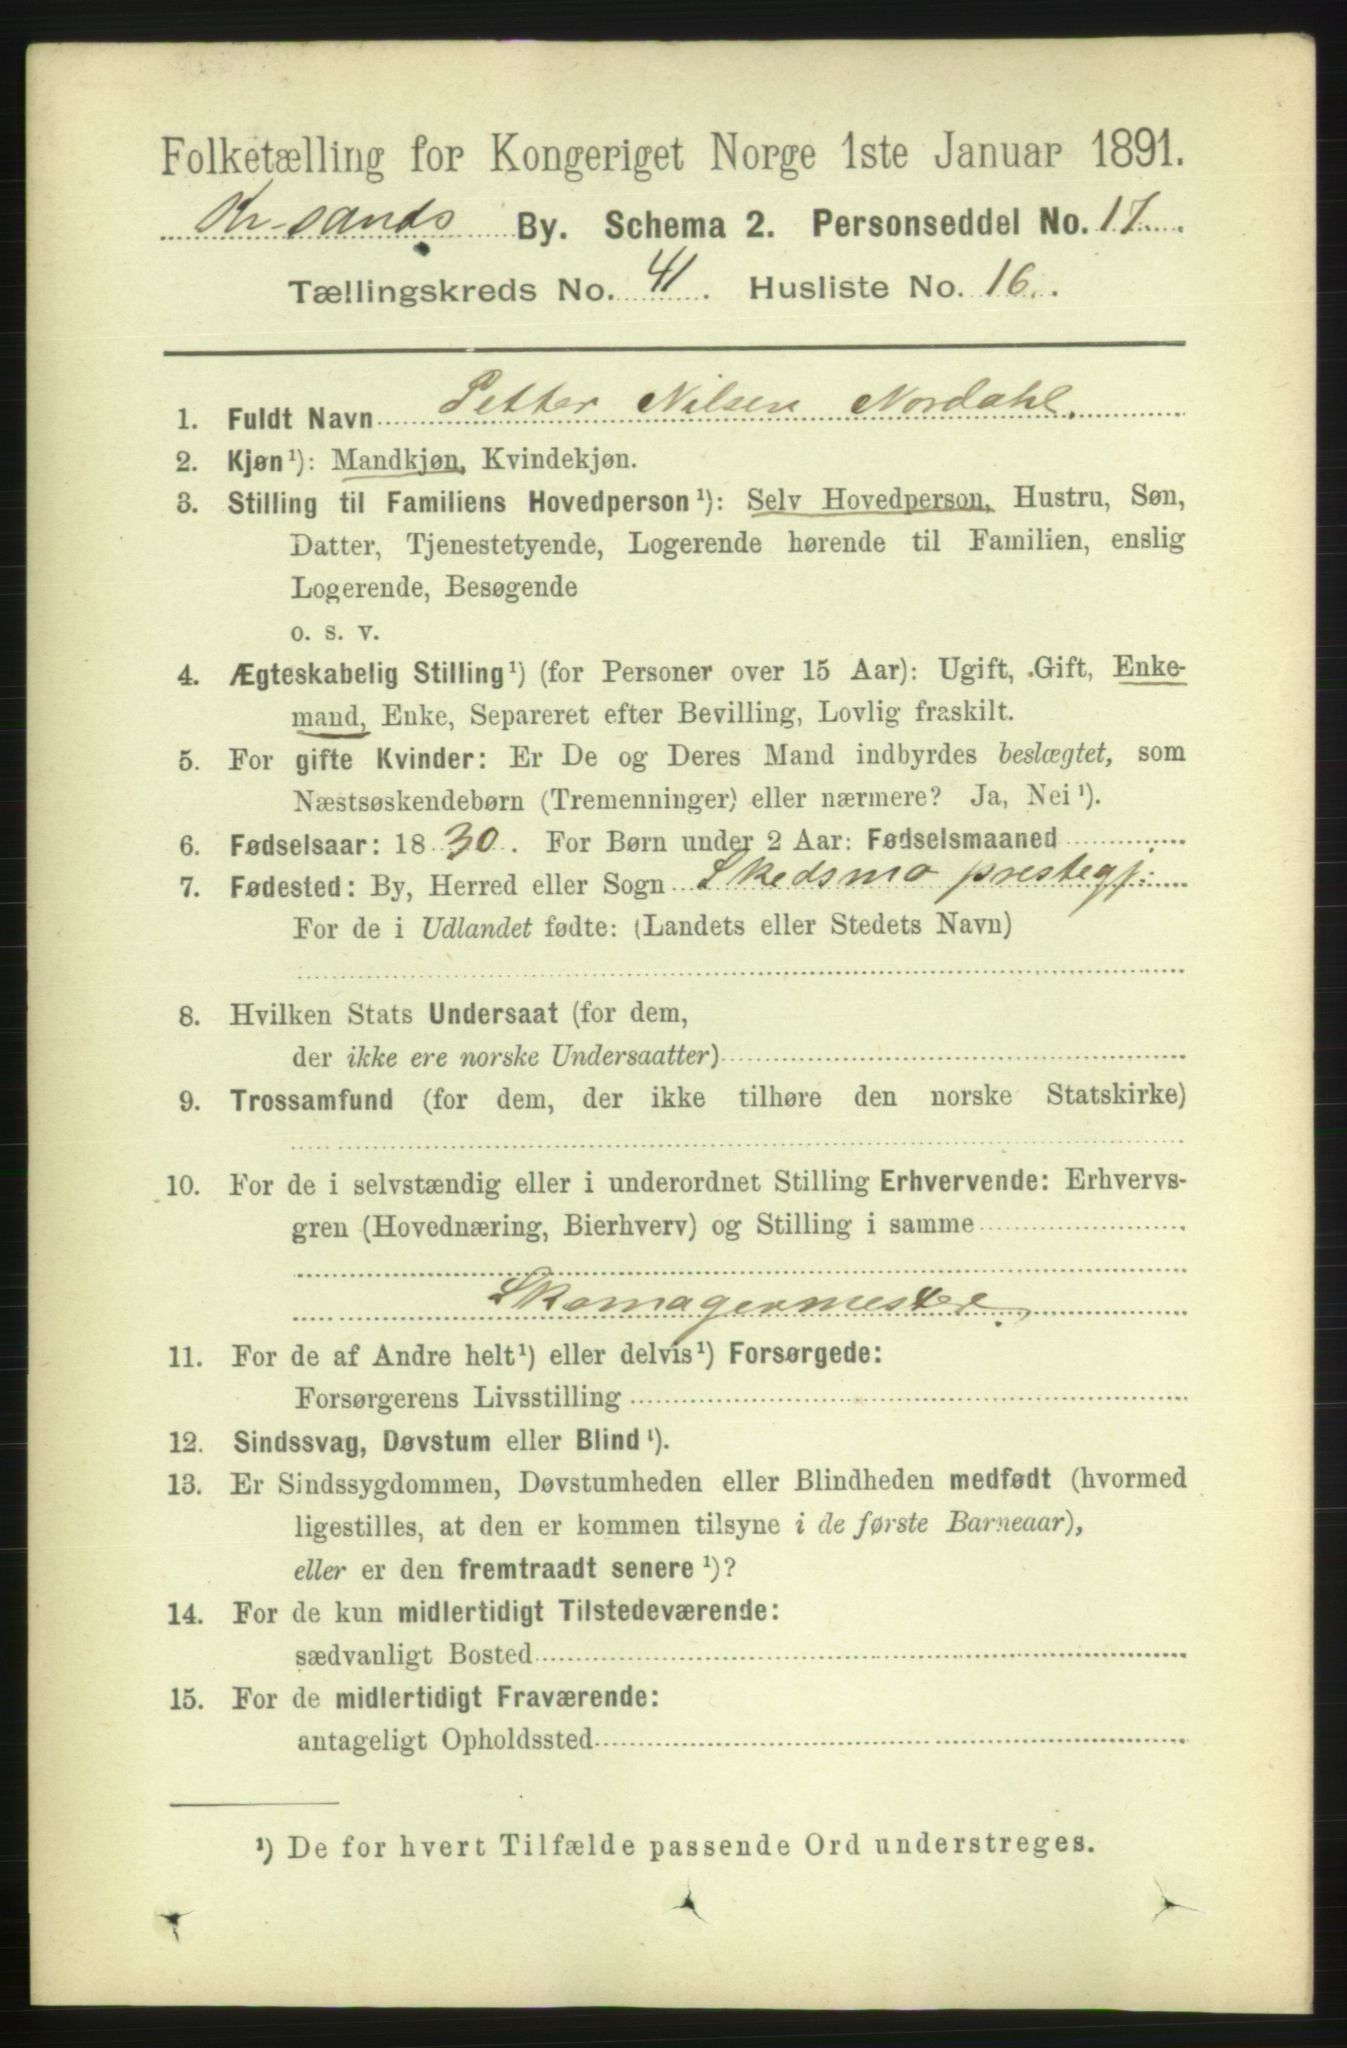 Folketælling for Kongeriget Norge 1ste Januar 1891.
Kr-sands By. Schema 2. Personseddel No. 17
Tællingskreds No. 41. Husliste No. 16.
1. Fuldt Navn Petter Nilsen Nordahl.
2. Kjøn¹): Mandkjøn, Kvindekjøn.
3. Stilling til Familiens Hovedperson¹): Selv Hovedperson, Hustru, Søn,
Datter, Tjenestetyende, Logerende hørende til Familien, enslig
Logerende, Besøgende
o. s. v.
4. Ægteskabelig Stilling¹) (for Personer over 15 Aar): Ugift, Gift, Enke-
mand, Enke, Separeret efter Bevilling, Lovlig fraskilt.
5. For gifte Kvinder: Er De og Deres Mand indbyrdes beslægtet, som
Næstsøskendebørn (Tremenninger) eller nærmere? Ja, Nei¹).
6. Fødselsaar: 1830. For Børn under 2 Aar: Fødselsmaaned
7. Fødested: By, Herred eller Sogn Skedsmo prestegj:
For de i Udlandet fødte: (Landets eller Stedets Navn)
8. Hvilken Stats Undersaat (for dem,
der ikke ere norske Undersaatter)
9. Trossamfund (for dem, der ikke tilhøre den norske Statskirke)
10. For de i selvstændig eller i underordnet Stilling Erhvervende: Erhvervs-
gren (Hovednæring, Bierhverv) og Stilling i samme
Skomagermester,
11. For de af Andre helt¹) eller delvis¹) Forsørgede:
Forsørgerens Livsstilling
12. Sindssvag, Døvstum eller Blind¹).
13. Er Sindssygdommen, Døvstumheden eller Blindheden medfødt (hvormed
ligestilles, at den er kommen tilsyne i de første Barneaar),
eller er den fremtraadt senere¹)?
14. For de kun midlertidigt Tilstedeværende:
sædvanligt Bosted
15. For de midlertidigt Fraværende:
antageligt Opholdssted
¹) De for hvert Tilfælde passende Ord understreges.